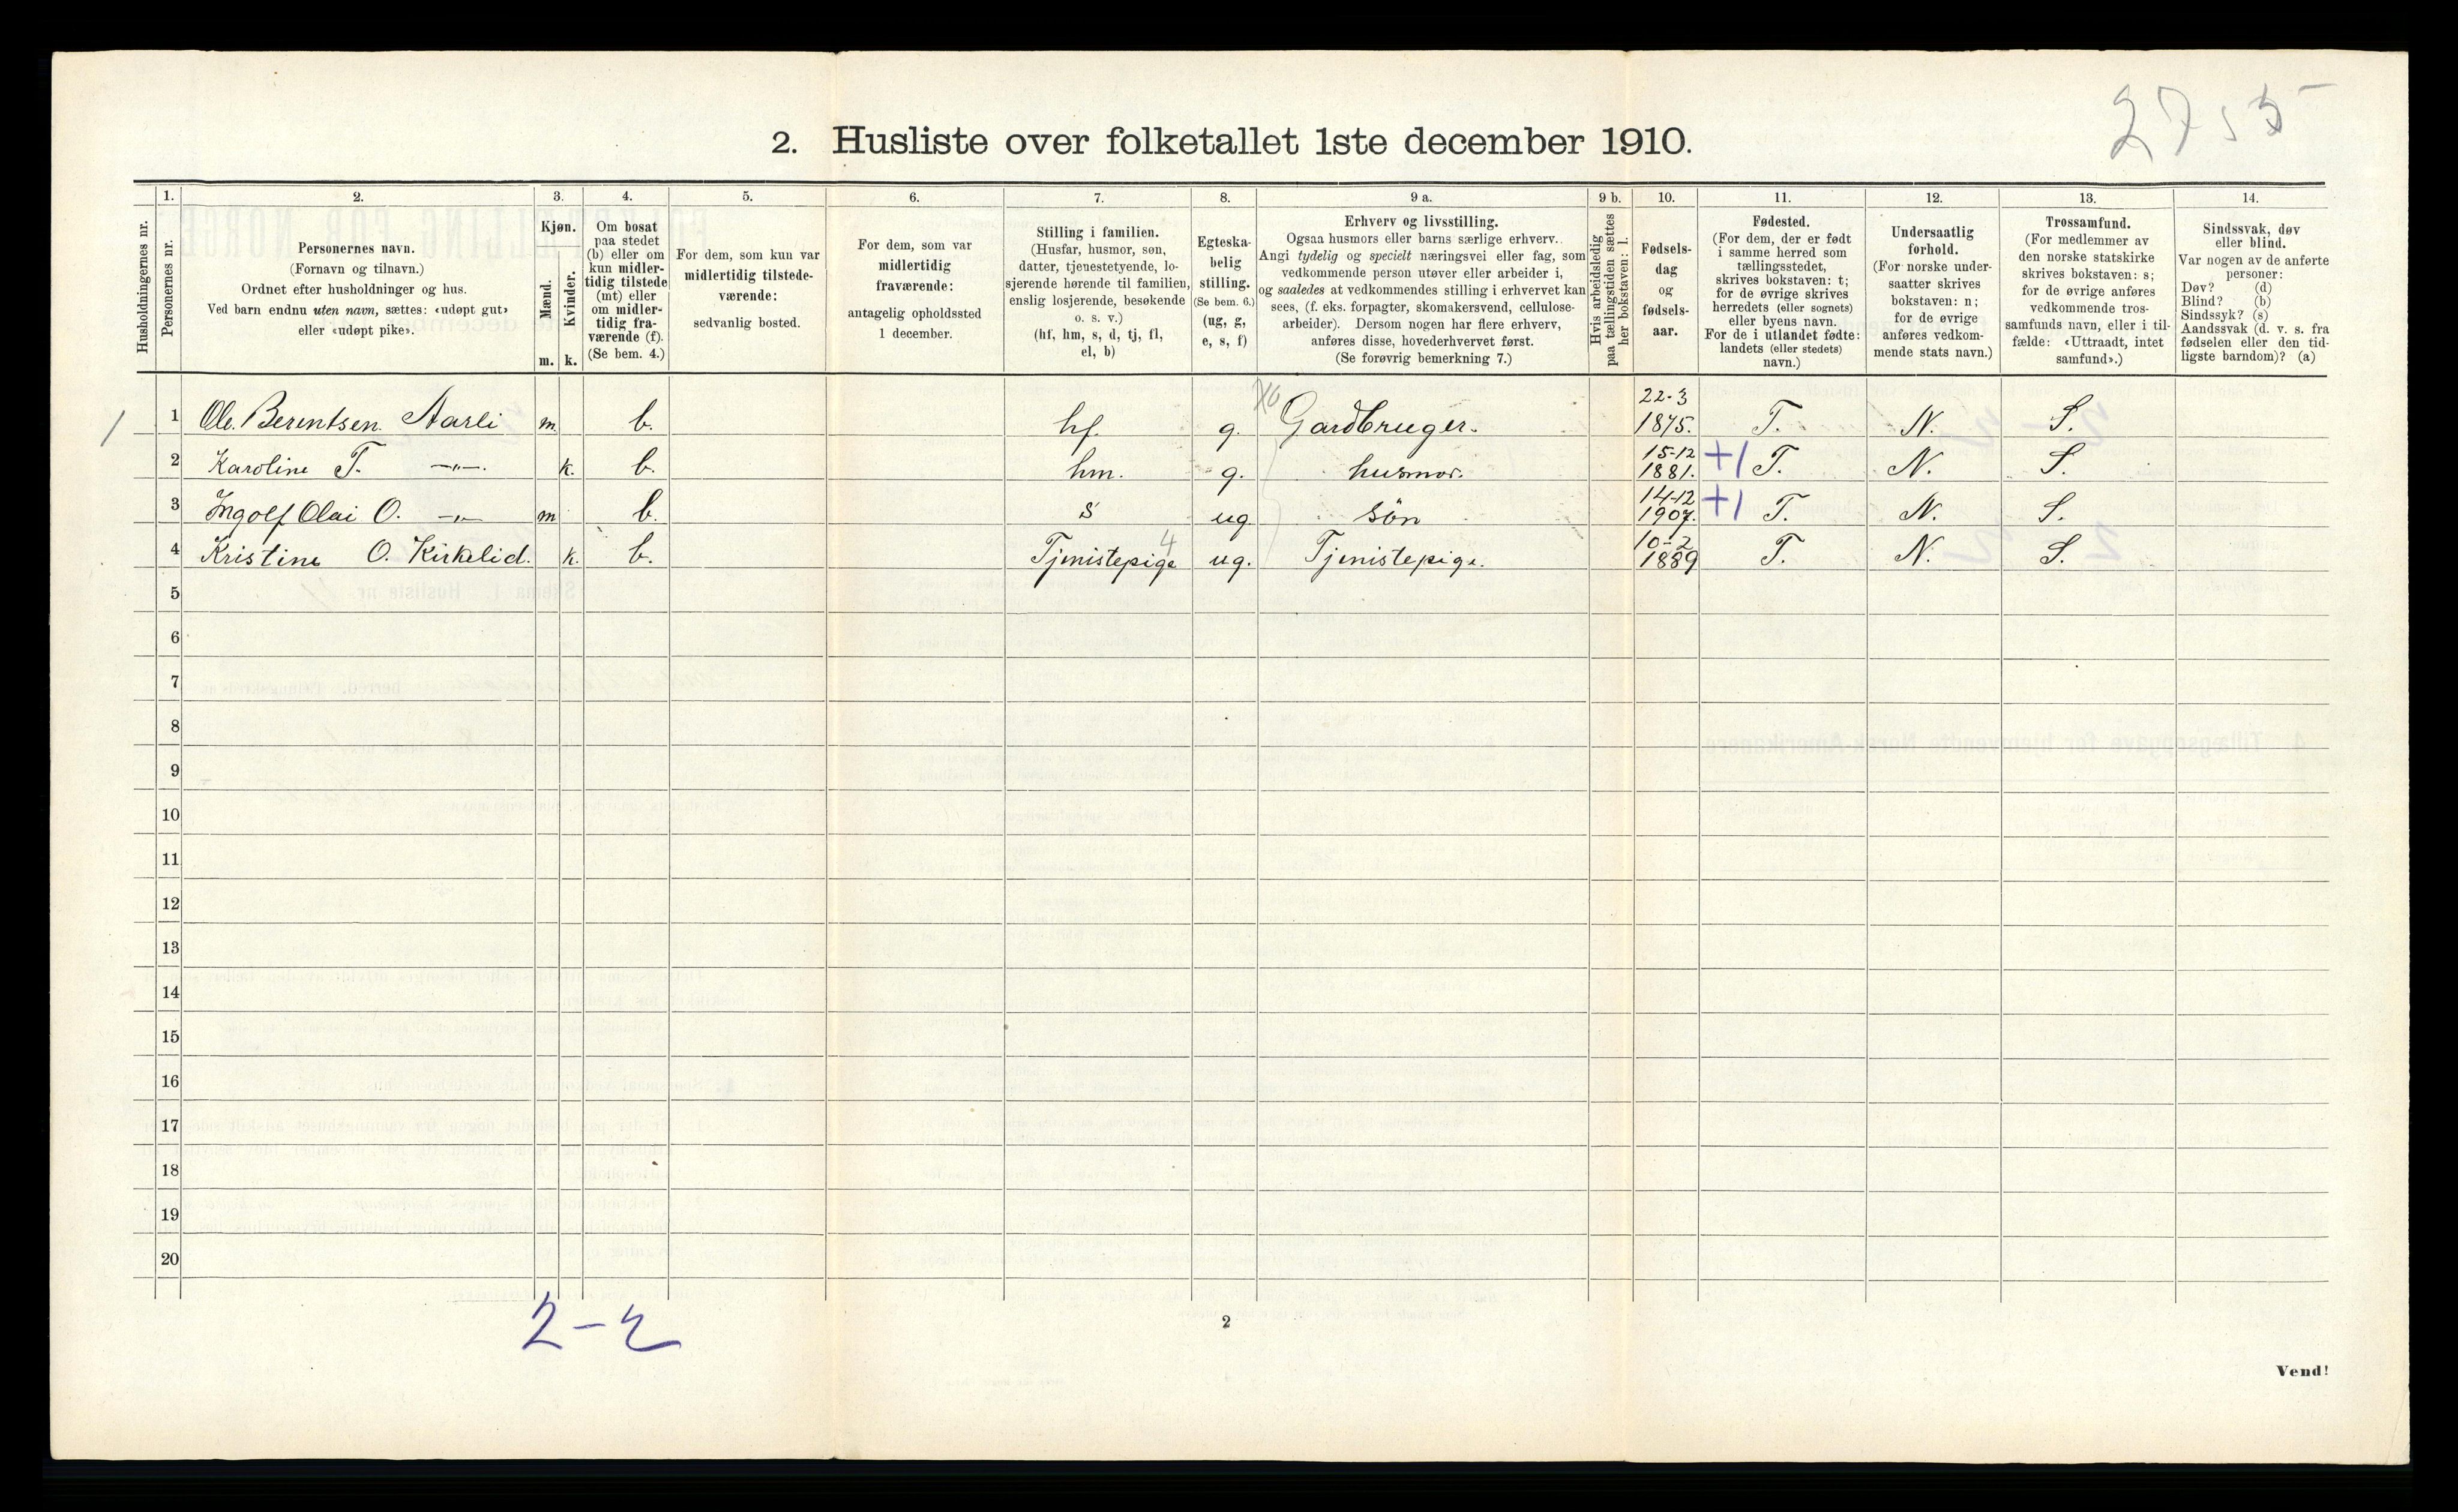 2755
2. Husliste over folketallet 1ste december 1910.
Husholdningernes nr.
1.
Personernes nr.
2.
Personernes navn.
(Fornavn og tilnavn.)
Ordnet efter husholdninger og hus.
Ved barn endnu uten navn, sættes: «udøpt gut»
eller «udøpt pike».
3.
Kjøn.
Mænd.
Kvinder.
m. k.
4.
Om bosat
paa stedet
(b) eller om
kun midler-
tidig tilstede
(mt) eller
om midler-
tidig fra-
værende (f).
(Se bem. 4.)
5.
For dem, som kun var
midlertidig tilstede-
værende:
sedvanlig bosted.
6.
For dem, som var
midlertidig
fraværende:
antagelig opholdssted
1 december.
7.
Stilling i familien.
(Husfar, husmor, søn,
datter, tjenestetyende, lo-
sjerende hørende til familien,
enslig losjerende, besøkende
o. s. v.)
(hf, hm, s, d, tj, fl,
el, b)
8.
Egteska-
belig
stilling.
(Se bem. 6.)
(ug, g,
e, s, f)
9 a.
Erhverv og livsstilling.
Ogsaa husmors eller barns særlige erhverv.
Angi tydelig og specielt næringsvei eller fag, som
vedkommende person utøver eller arbeider i,
og saaledes at vedkommendes stilling i erhvervet kan
sees, (f. eks. forpagter, skomakersvend, cellulose-
arbeider). Dersom nogen har flere erhverv,
anføres disse, hovederhvervet først.
(Se forøvrig bemerkning 7.)
9 b.
Hvis arbeidsledig
paa tællingstiden sættes
her bokstaven: l.
10.
Fødsels-
dag
og
fødsels-
aar.
11.
Fødested.
(For dem, der er født
i samme herred som
tællingsstedet,
skrives bokstaven: t;
for de øvrige skrives
herredets (eller sognets)
eller byens navn.
For de i utlandet fødte:
landets (eller stedets)
navn.)
12.
Undersaatlig
forhold.
(For norske under-
saatter skrives
bokstaven: n;
for de øvrige
anføres vedkom-
mende stats navn.)
13.
Trossamfund.
(For medlemmer av
den norske statskirke
skrives bokstaven: s;
for de øvrige anføres
vedkommende tros-
samfunds navn, eller i til-
fælde: «Uttraadt, intet
samfund».)
14.
Sindssvak, døv
eller blind.
Var nogen av de anførte
personer:
Døv? (d)
Blind? (b)
Sindssyk? (s)
Aandssvak (d. v. s. fra
fødselen eller den tid-
ligste barndom)? (a)
1 1 Ole Berentsen Aarli m b. hf. g. Gardbruger. 22-3 1875. T. N. S.
2 Karoline T. —"—. k. b. hm. g. husmor. 15-12 1881. +1 T. N. S.
3 Ingolf Olai O. —"— m b. s ug søn 14-12 1907. +1 T. N. S.
4 Kristine O. Kirkelid. k. b. Tjenistepige 4 ug. Tjenistepige. 10-2 1889 T. N. S.
5
6
7
8
9
10
11
12
13
14
15
16
17
18
19
20
2-2
2
Vend!